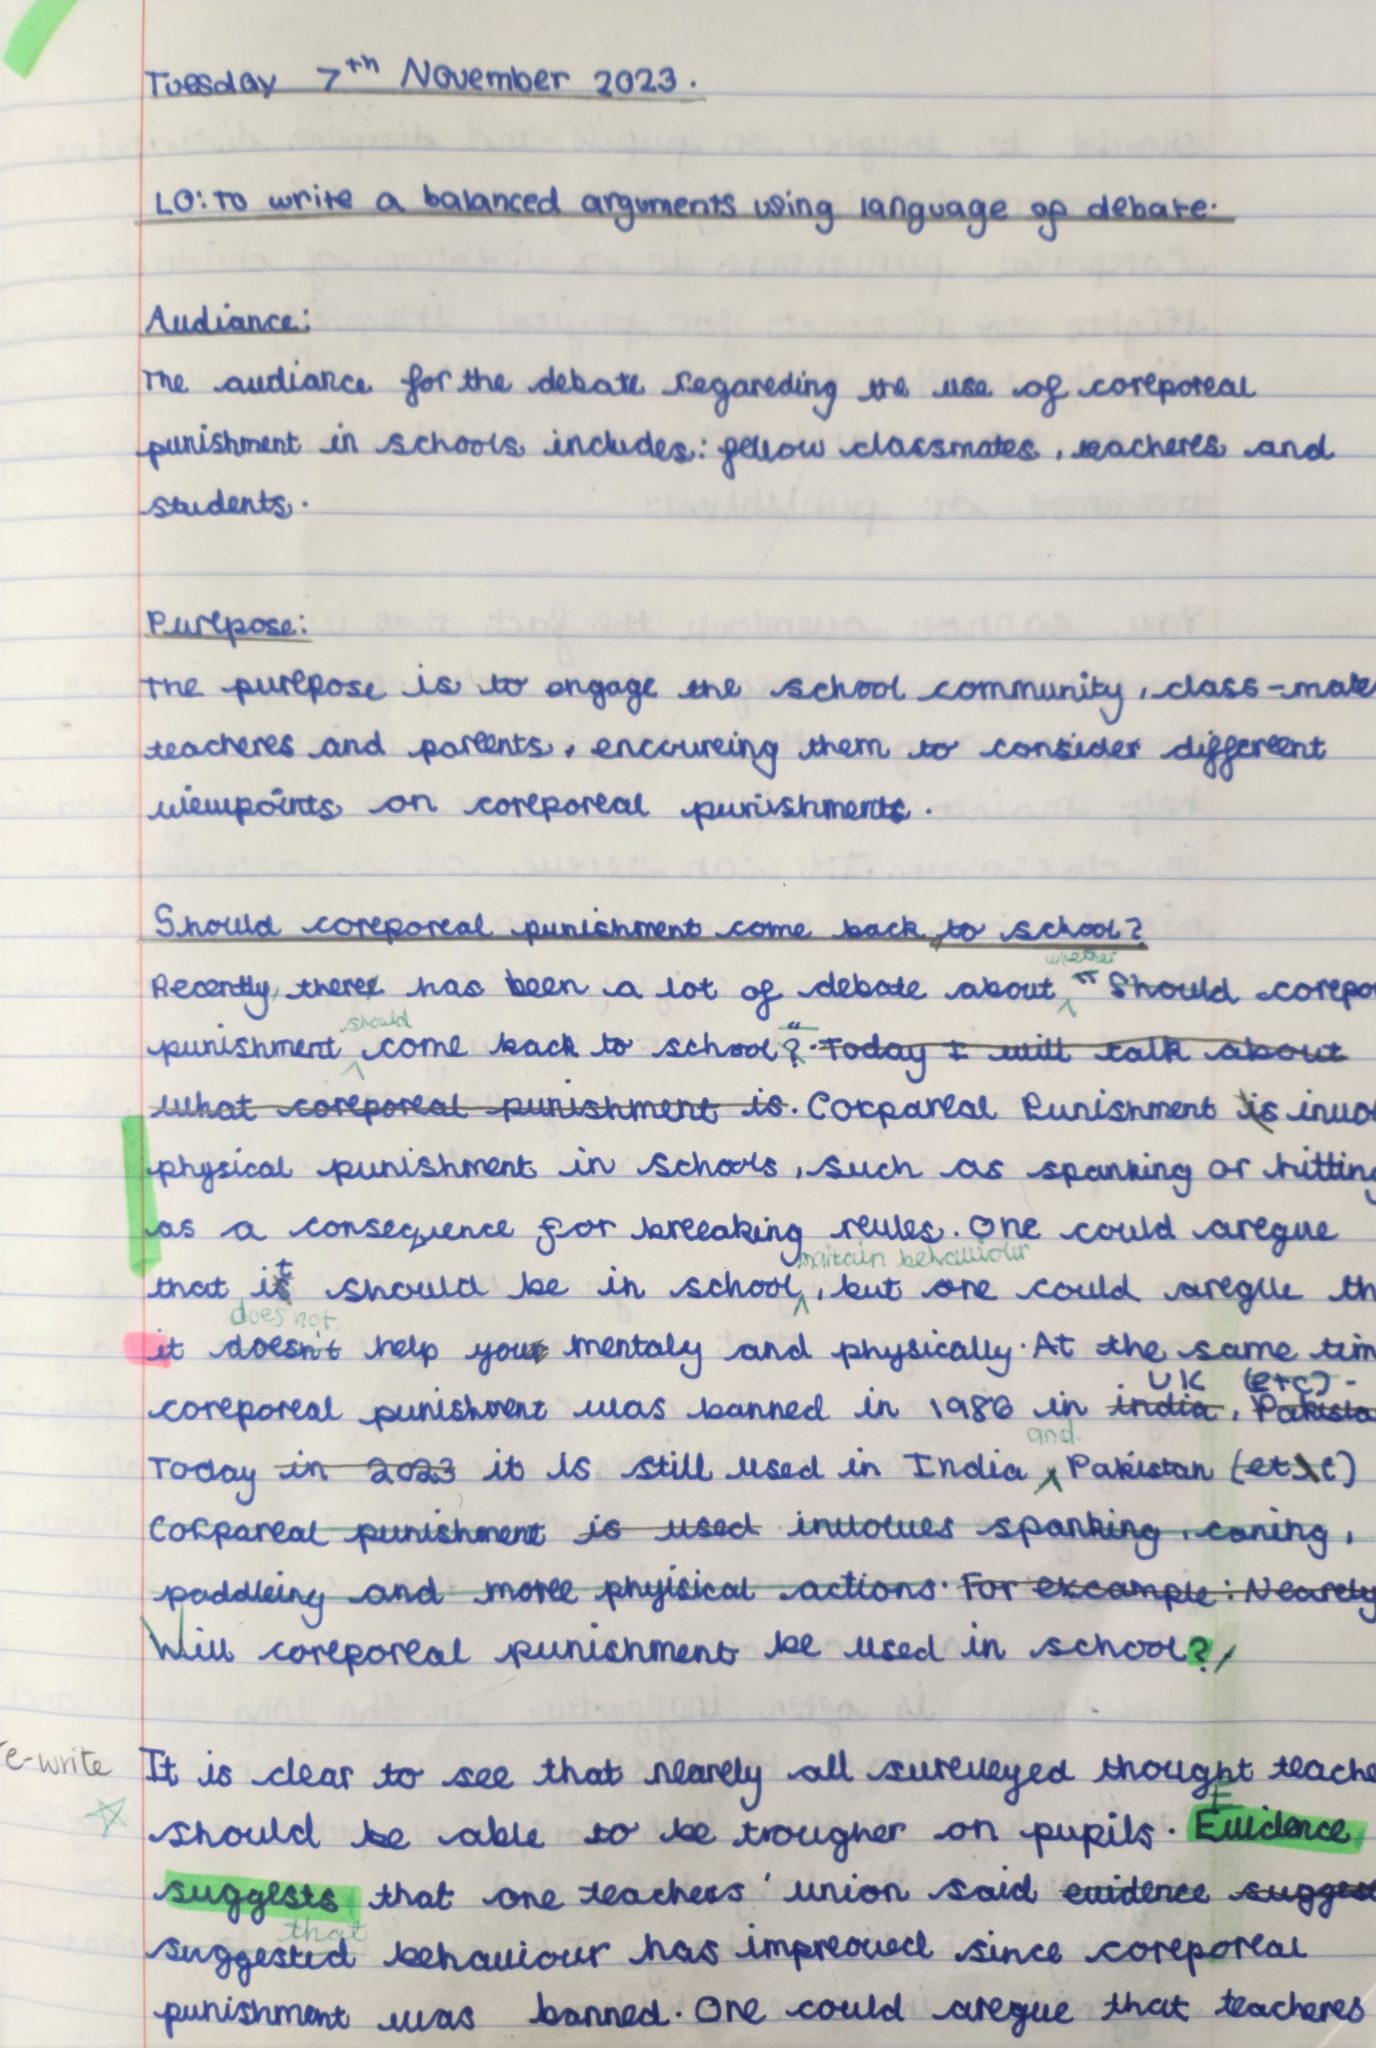 Tuesday 7th November 2023.
LO: To write a balanced arguments using language of debate.
Audiance:
The audiance for the debate regareding the use of coreporeal
punishment in schools includes: fellow classmates, teacheres and
students.
Purepose:
The purepose is to engage the school community, class-mate
teacheres and parents, encoureing them to consider differeent
viewpoints on coreporeal punishments.
Should coreporeal punishment come back to school?
whether
Recently, there has been a lot of debate about "Should corepo
should
punishment come back to school?" Today I will talk about
what coreporeal punishment is. Corpareal Punishment is invol
physical punishment in schools, such as spanking or hitting
as a consequence for breeaking reules. One could aregue
maitain behaviour
that it should be in school, but one could aregue th
does not
it doesn't help you mentaly and physically. At the same tim
UK (etc).
coreporeal punishment was banned in 1986 in india, Pakista
and
Today in 2023 it is still used in India Pakistan (etc)
Corpareal punishment is used involves spanking, caning,
paddleing and moree phyisical actions. For excample: Nearely
Will coreporeal punishment be used in school?
re-write It is clear to see that nearely all sureveyed thought teache
should be able to be trougher on pupils. Evidence
suggests that one teachers' union said evidence sugges
that
suggested behaviour has impreoved since coreporeal
punishment was banned. One could aregue that teacheres